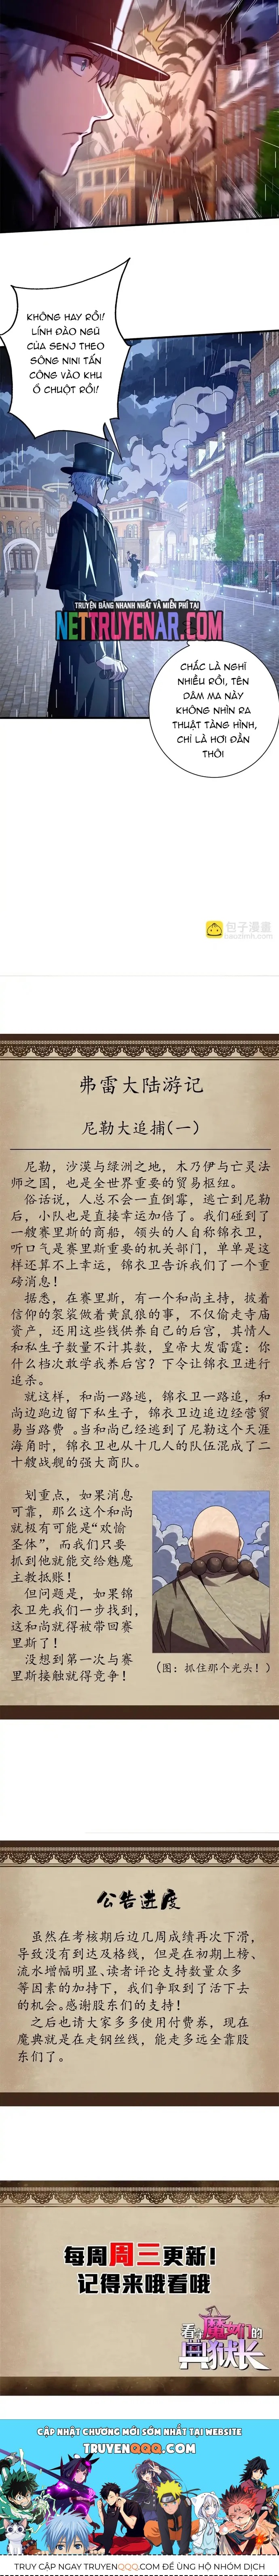 KHÔNG HAY RỒI!
LÍNH ĐÀO NGŨ
CỦA SENJ THEO
SÔNG NINI TẤN
CÔNG VÀO KHU
Ổ CHUỘT RỒI!
TRUYỆN ĐĂNG NHANH NHẤT VÀ MIỄN PHÍ TẠI
NETTRUYENAR.COM
CHẮC LÀ NGHĨ
NHIỀU RỒI, TÊN
DÂM MA NÀY
KHÔNG NHÌN RA
THUẬT TÀNG HÌNH,
CHỈ LÀ HƠI ĐẦN
THÔI
包子漫畫
baozimh.com
弗雷大陆游记
尼勒大追捕(一)
尼勒，沙漠与绿洲之地，木乃伊与亡灵法
师之国，也是全世界重要的贸易枢纽。
俗话说，人总不会一直倒霉，逃亡到尼勒
后，小队也是直接幸运加倍了。我们碰到了
一艘赛里斯的商船，领头的人自称锦衣卫，
听口气是赛里斯重要的机关部门，单单是这
样还算不上幸运，锦衣卫告诉我们了一个重
磅消息！
据悉，在赛里斯，有一个和尚主持，披着
信仰的袈裟做着黄鼠狼的事，不仅偷走寺庙
资产，还用这些钱供养自己的后宫，其情人
和私生子数量不计其数，皇帝大发雷霆：你
什么档次敢学我养后宫？下令让锦衣卫进行
追杀。
就这样，和尚一路逃，锦衣卫一路追，和
尚边跑边留下私生子，锦衣卫边追边经营贸
易当路费 。当和尚已经逃到了尼勒这个天涯
海角时，锦衣卫也从十几人的队伍混成了二
十艘战舰的强大商队。
划重点，如果消息
可靠，那么这个和尚
就极有可能是“欢愉
圣体”，而我们只要
抓到他就能交给魅魔
主教抵账！
但问题是，如果锦
衣卫先我们一步找到，
这和尚就得被带回赛
里斯了！
没想到第一次与赛
里斯接触就得竞争！
（图：抓住那个光头！）
公告进度
虽然在考核期后边几周成绩再次下滑，
导致没有到达及格线，但是在初期上榜、
流水增幅明显、读者评论支持数量众多
等因素的加持下，我们争取到了活下去
的机会。感谢股东们的支持！
之后也请大家多多使用付费券，现在
魔典就是在走钢丝线，能走多远全靠股
东们了。
每周周三更新！
记得来哦看哦
看守魔女们的典狱长
CẬP NHẬT CHƯƠNG MỚI SỚM NHẤT TẠI WEBSITE
TRUYENQQQ.COM
TRUY CẬP NGAY TRUYENQQQ.COM ĐỂ ỦNG HỘ NHÓM DỊCH